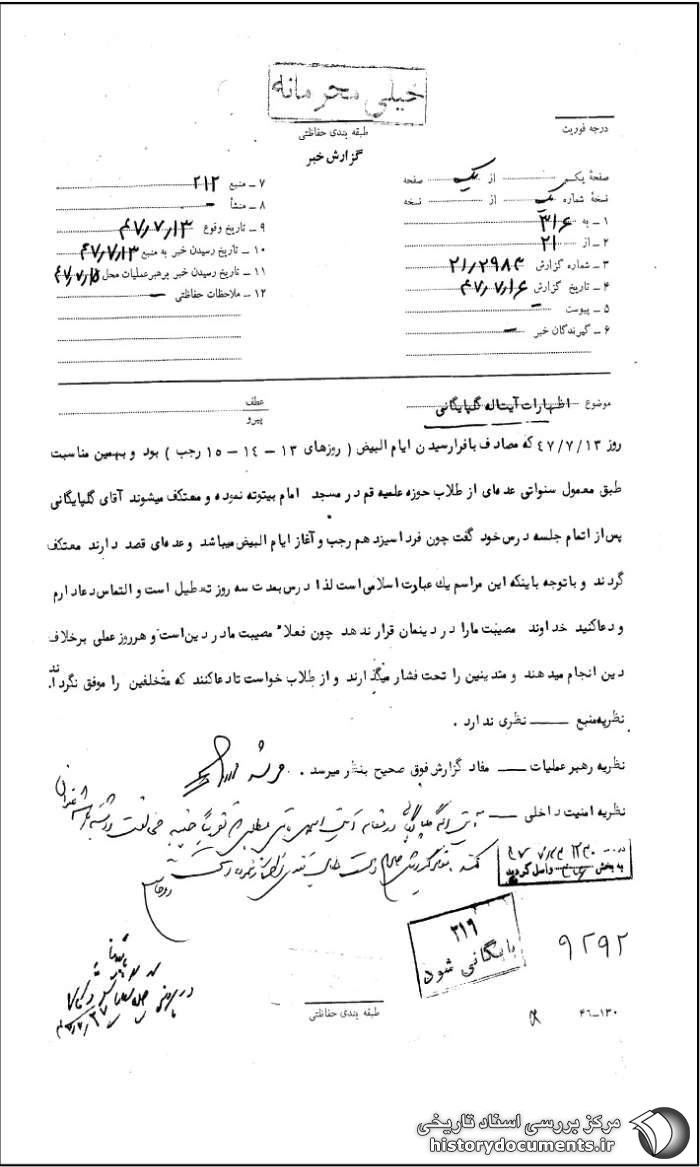 خیلی محرمانه
طبقه بندی حفاظتی
درجه فوریت
گزارش خبر
صفحهٔ یک از یک صفحه
نسخهٔ شماره یک از نسخه
۱ ـ به ۳۱۶
۲ ـ از ۲۱
۳ ـ شماره گزارش ۲۱٫۲۹۸۴
۴ ـ تاریخ گزارش ۴۷٫۷٫۱۶
۵ ـ پیوست ـ
۶ ـ گیرندگان خبر ـ
۷ ـ منبع ۲۱۲
۸ ـ منشأ ـ
۹ ـ تاریخ وقوع ۴۷٫۷٫۱۳
۱۰ ـ تاریخ رسیدن خبر به منبع ۴۷٫۷٫۱۳
۱۱ ـ تاریخ رسیدن خبر برهبر عملیات محل ۴۷٫۷٫۱۵
۱۲ ـ ملاحظات حفاظتی ـ
موضوع اظهارات آیتاله گلپایگانی
عطف
پیرو
روز ۴۷/۷/۱۳ که مصادف با فرارسیدن ایام البیض ( روزهای ۱۳ ـ ۱۴ ـ ۱۵ رجب ) بود و بهمین مناسبت
طبق معمول سنواتی عده‌ای از طلاب حوزه علمیه قم در مسجد امام بیتوته نموده و معتکف میشوند آقای گلپایگانی
پس از اتمام جلسه درس خود گفت چون فردا سیزدهم رجب و آغاز ایام البیض میباشد و عده‌ای قصد دارند معتکف
گردند و با توجه باینکه این مراسم یك عبارت اسلامی است لذا درس بمدت سه روز تعطیل است و التماس دعا دارم
و دعا کنید خداوند مصیبت ما را در دینمان قرار ندهد چون فعلا" مصیبت ما در دین است و هر روز عملی برخلاف
دین انجام میدهند و متدینین را تحت فشار میگذارند و از طلاب خواست تا دعا کنند که متخلفین را موفق نگرداند.
نظریه منبع ـــ نظری ندارد .
نظریه رهبر عملیات ـــ مفاد گزارش فوق صحیح بنظر میرسد .
نظریه امنیت داخلی ـــ
به بخش واصل گردید
۳۱۹
بایگانی شود
۹۲۹۲
طبقه بندی حفاظتی
۴۶ـ۱۳۰
مرکز بررسی اسناد تاریخی
historydocuments.ir